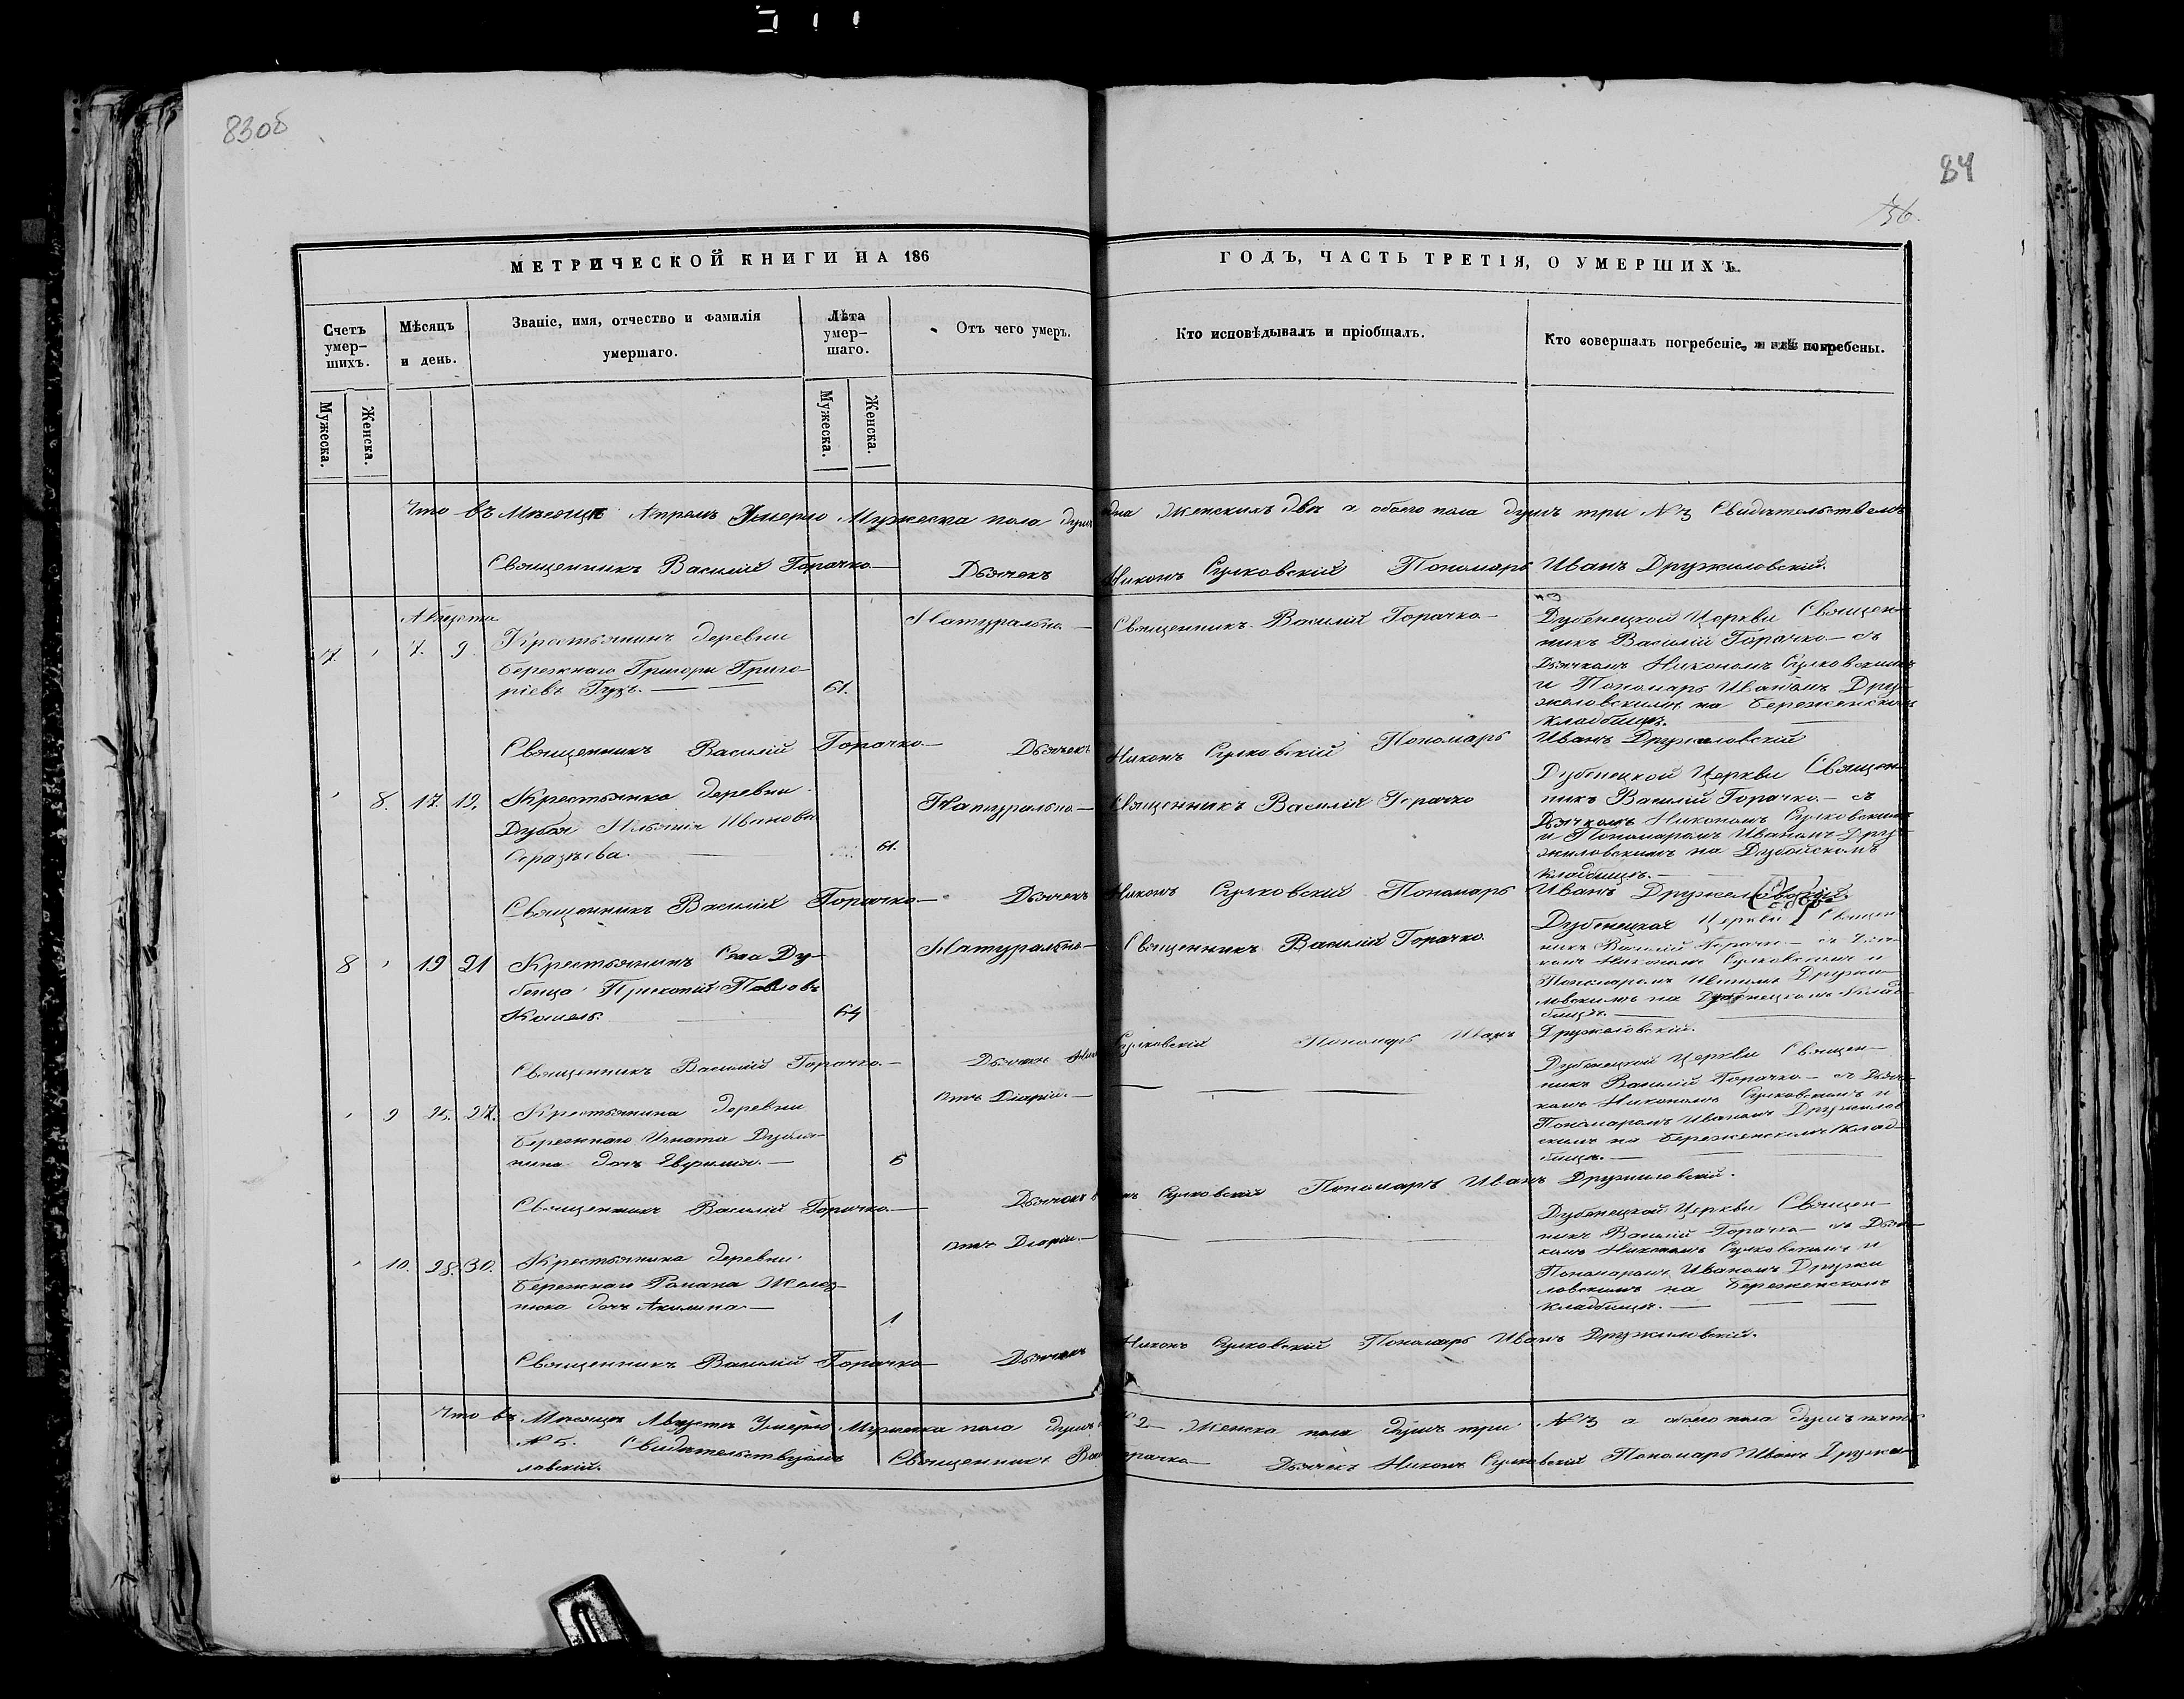 83об
84
156.
МЕТРИЧЕСКОЙ КНИГИ НА 186
ГОДЪ, ЧАСТЬ ТРЕТІЯ, О УМЕРШИХЪ.
Счетъ умер-шихъ.
Мѣсяцъ и день.
Званіе, имя, отчество и фамилія умершаго.
Лѣта умер-шаго.
Отъ чего умеръ.
Кто исповѣдывалъ и пріобщалъ.
Кто совершалъ погребеніе, и гдѣ погребены.
Мужеска.
Женска.
Мужеска.
Женска.
Что въ Мѣсяцѣ Апрѣлѣ Умерло Мужеска пола душ одна Женскихъ двѣ а обоего пола душъ три №3 Свидѣтельствуемъ
Священникъ Василій Горачко— Дьячекъ Никонъ Сулковскій Пономарь Иванъ Дружиловскій.
Августа
7. 7. 9. Крестьянинъ деревни
Бережнаго Григори Григо-
ріевъ Гузъ.
61.
Натурально—
Священникъ Василій Горачко—
Дубенецкой Церкви Священ-
никъ Василій Горачко— съ
Дьячкомъ Никономъ Сулковскимъ
и Пономарь Иваномъ Дру-
желовскимъ на Береженскомъ
кладбищѣ.
Священникъ Василій Горачко— Дьячекъ Никонъ Сулковскій Пономарь Иванъ Дружиловскій
8. 17. 19. Крестьянка деревни
Дубоя Иванова
61.
Натурально—
Священникъ Василій Горачко
Дубенецкой Церкви Священ-
никъ Василій Горачко— съ
Дьячкомъ Никономъ Сулковскимъ
и Пономаромъ Иваномъ Дру-
жиловскимъ на Дубойскомъ
кладбищѣ.—
Священникъ Василій Горачко— Дьячекъ Никонъ Сулковскій Пономарь Иванъ Дружеловскій.
8 19 21 Крестьянинъ Села Ду-
бенца Прокопій Павловъ
64
Натурально—
Священникъ Василій Горачко
Дубенецкой Церкви Священ-
никъ Василій Горачко— съ Дьяч-
комъ Никономъ Сулковскимъ и
Пономаромъ Иваномъ Дружи-
ловскимъ на Дубенецкомъ Клад-
бищѣ.—
Священникъ Василій Горачко.— Дьячекъ Сулковскій Пономарь Иванъ Дружеловскій.
9 25. 27. Крестьянина деревни
Бережнаго Игната Дубля-
нина дочь Евфимія.—
6
Отъ Діаріи.—
Дубенецкой Церкви Священ-
никъ Василій Горачко— съ Дьяч-
комъ Никономъ Сулковскимъ и
Пономаромъ Иваномъ Дружилов-
скимъ на Береженскомъ Клад-
бищѣ.—
Священникъ Василій Горачко.— Дьячекъ Сулковскій Пономарь Иванъ Дружиловскій.
10. 28. 30. Крестьянина деревни
Бережнаго Романа Желез-
нюка дочь Акилина—
1
Отъ Діаріи.—
Дубенецкой Церкви Священ-
никъ Василій Горачко— съ Дьяч-
комъ Никономъ Сулковскимъ и
Пономаромъ Иваномъ Дружи
ловскимъ на Береженскомъ
кладбищѣ.—
Священникъ Василій Горачко— Дьячекъ Никонъ Сулковскій Пономарь Иванъ Дружиловскій.
Что въ Мѣсяцѣ Августѣ Умерло Мужеска пола душъ 2— Женска пола душъ три №3 а обоего пола душъ пять
№5. Свидѣтельствуемъ Священникъ Ва орачко— Дьячекъ Никонъ Сулковскій Пономарь Иванъ Дружи-
ловскій.